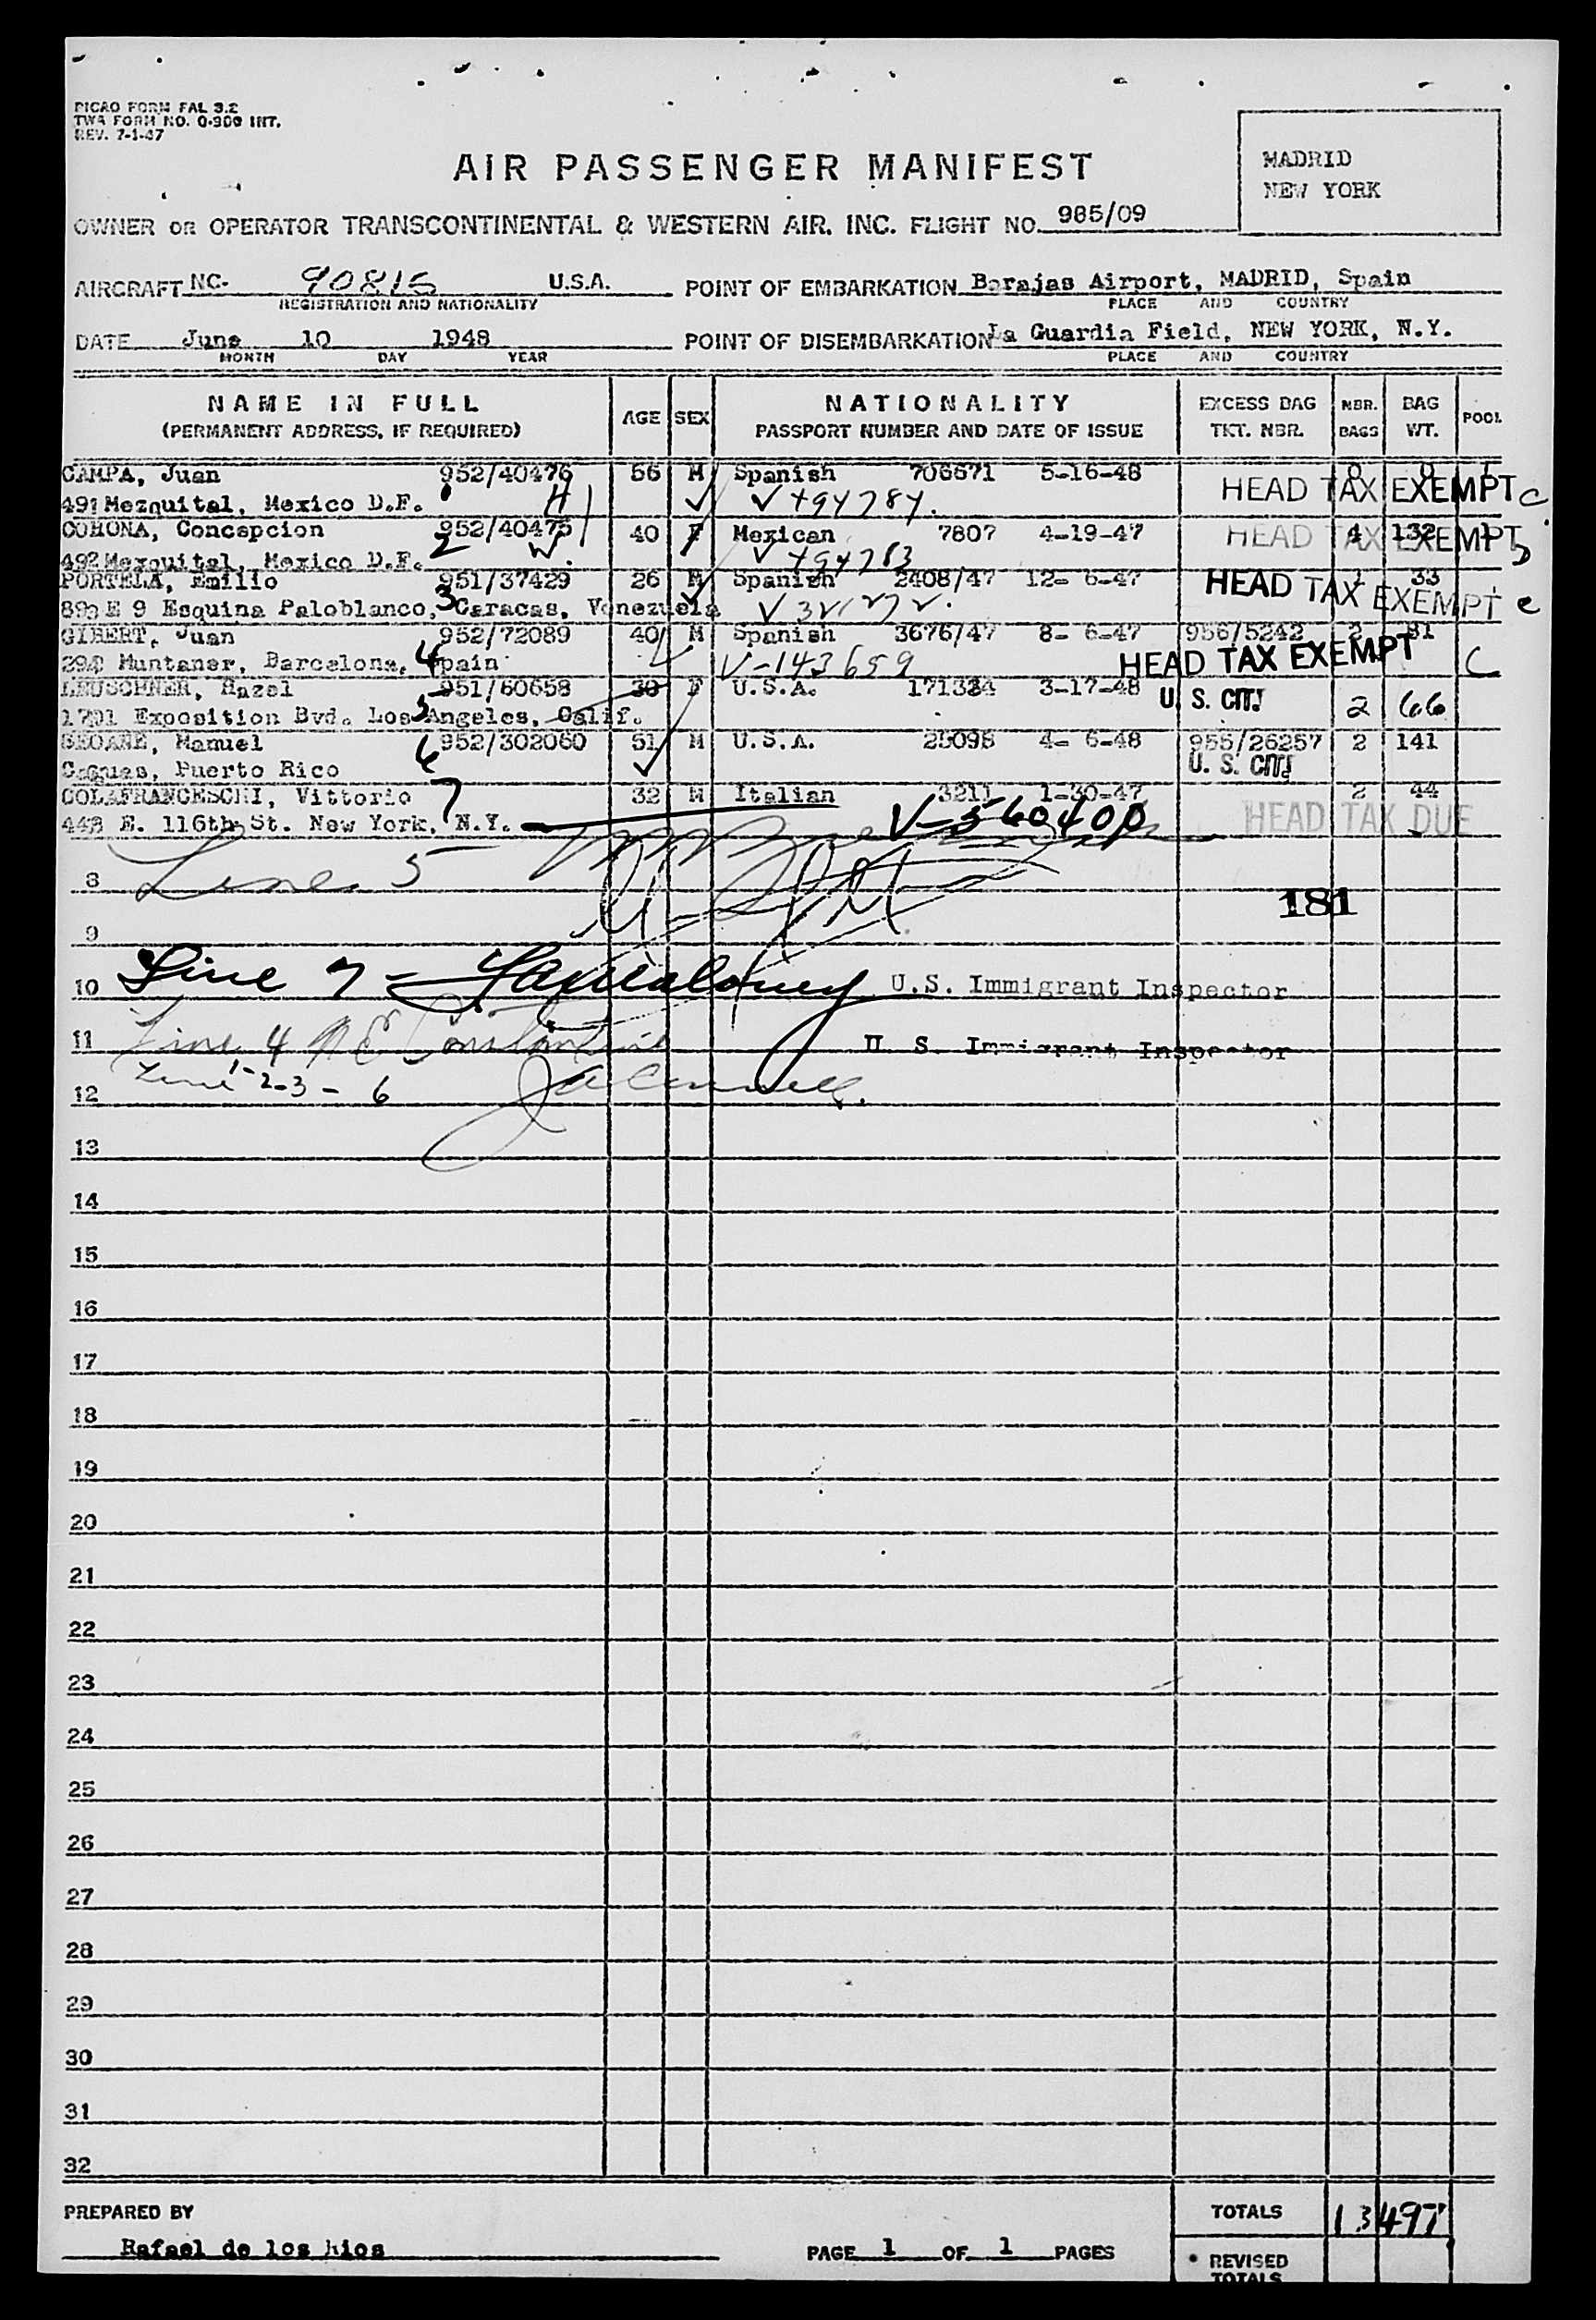 PICAO FORM FAL 3.2
TWA FORM NO. O-300 INT.
REV. 7-1-47
MADRID
NEW YORK
AIR PASSENGER MANIFEST
OWNER OR OPERATOR TRANSCONTINENTAL & WESTERN AIR. INC. FLIGHT NO. 985/09
AIRCRAFT NC- 90815 U.S.A. POINT OF EMBARKATION Barajas Airport, MADRID, Spain
REGISTRATION AND NATIONALITY PLACE AND COUNTRY
DATE June 10 1948 POINT OF DISEMBARKATION La Guardia Field, NEW YORK, N.Y.
MONTH DAY YEAR PLACE AND COUNTRY
NAME IN FULL AGE SEX NATIONALITY EXCESS BAG NBR. BAG POOL
(PERMANENT ADDRESS, IF REQUIRED) PASSPORT NUMBER AND DATE OF ISSUE TKT. NBR. BAGS WT.
CAMPA, Juan 952/40476 56 M Spanish 706671 5-16-48
491 Mezquital, Mexico D.F. H V+94784. HEAD TAX EXEMPT C
COHONA, Concepcion 952/40475 40 F Mexican 7807 4-19-47 4 132 HEAD TAX EXEMPT
492 Mezquital, Mexico D.F. 2 W V+94783
PORTELA, Emilio 951/37429 26 M Spanish 2408/47 12- 6-47 33 HEAD TAX EXEMPT c
E 9 Esquina Paloblanco, 3 Caracas, Venezuela
GIBERT, Juan 952/72089 40 M Spanish 3676/47 8- 6-47 956/5242 2 81
Muntaner, Barcelona, 4 Spain V-143659 HEAD TAX EXEMPT C
LEUSCHNER, Hazel 951/60658 30 F U.S.A. 171384 3-17-48 U. S. CIT.
Exposition Bvd. Los Angeles, Calif. 2 66
SEOANE, Manuel 6 952/302060 51 M U.S.A. 25098 4- 6-48 955/26257 2 141
Caguas, Puerto Rico U. S. CIT.
COLAFRANCESCHI, Vittorio 7 32 M Italian 3211 1-30-47 2 44
443 E. 116th St. New York, N.Y. V-560400 HEAD TAX DUE
Line 5
8
181
9
10 Line 7 - U.S. Immigrant Inspector
11 Line 4 N E Constantine U. S. Immigrant Inspector
12 Line 1-2-3-6
13
14
15
16
17
18
19
20
21
22
23
24
25
26
27
28
29
30
31
32
PREPARED BY TOTALS 13 497
Rafael de los Rios PAGE 1 OF 1 PAGES
• REVISED
TOTALS